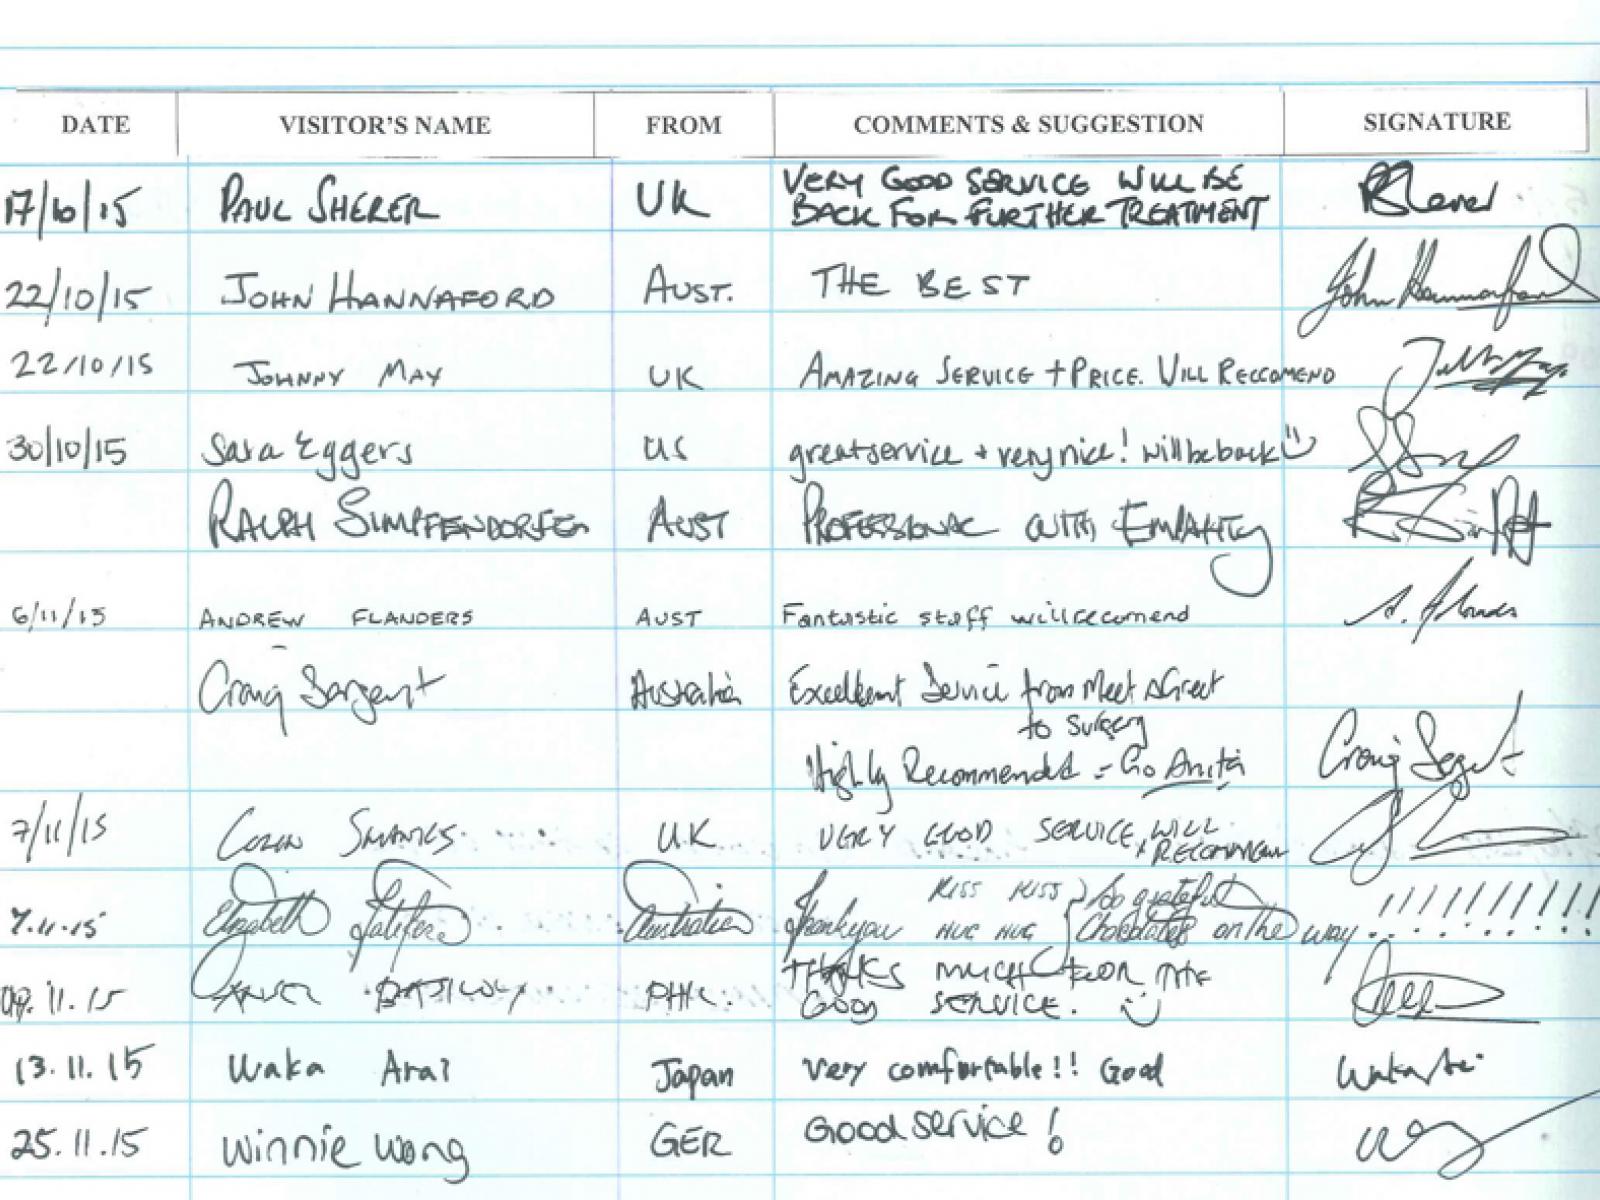 DATE VISITOR'S NAME FROM COMMENTS & SUGGESTION SIGNATURE
17/10/15 PAUL SHERER UK VERY GOOD SERVICE WILL BE
BACK FOR FURTHER TREATMENT
22/10/15 JOHN HANNAFORD AUST. THE BEST John Hannaford
22/10/15 JOHNNY MAY UK AMAZING SERVICE + PRICE. WILL RECCOMEND
30/10/15 Sara Eggers US great service + very nice! will be back
RALPH SUMPFENDORFER AUST PROFESSIONAL WITH EMPATHY
6/11/15 ANDREW FLANDERS AUST Fantastic staff will recomend
Craig Sargent Australia Excellent Service from Meet & Greet
to surgery
Highly Recommended - Go Anita Craig Sargent
7/11/15 COLIN U.K VERY GOOD SERVICE, WILL
RECOMMEND
7.11.15 Elizabeth Australia Thankyou KISS KISS So grateful !!!!!!!!!!
HUG HUG Chocolates on the way
.11.15 PHIL. THANKS MUCH FOR THE
GOOD SERVICE.
13.11.15 Waka Arai Japan Very comfortable!! Good
25.11.15 Winnie Wong GER Good service!